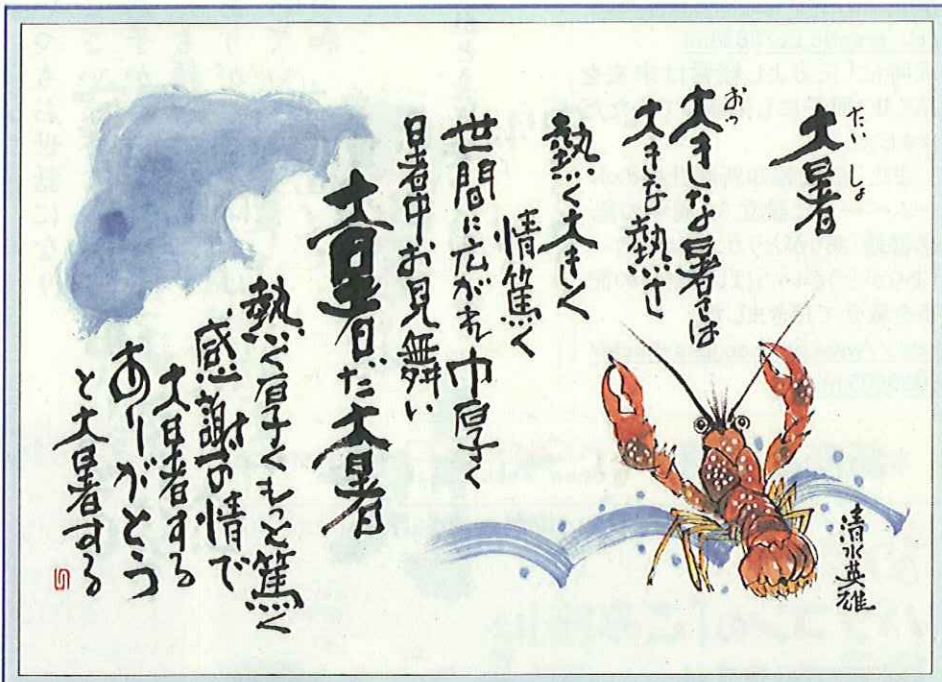 大暑
たいしょ
大きしたよ暑さは
おっ
大きな熱いさ
熱く大きく
情篤く
世間に広がれ巾厚く
暑中お見舞い
大暑だ大暑
熱く厚くもっと篤く
感謝の情で
大暑する
ありがとう
と大暑する
清水英雄